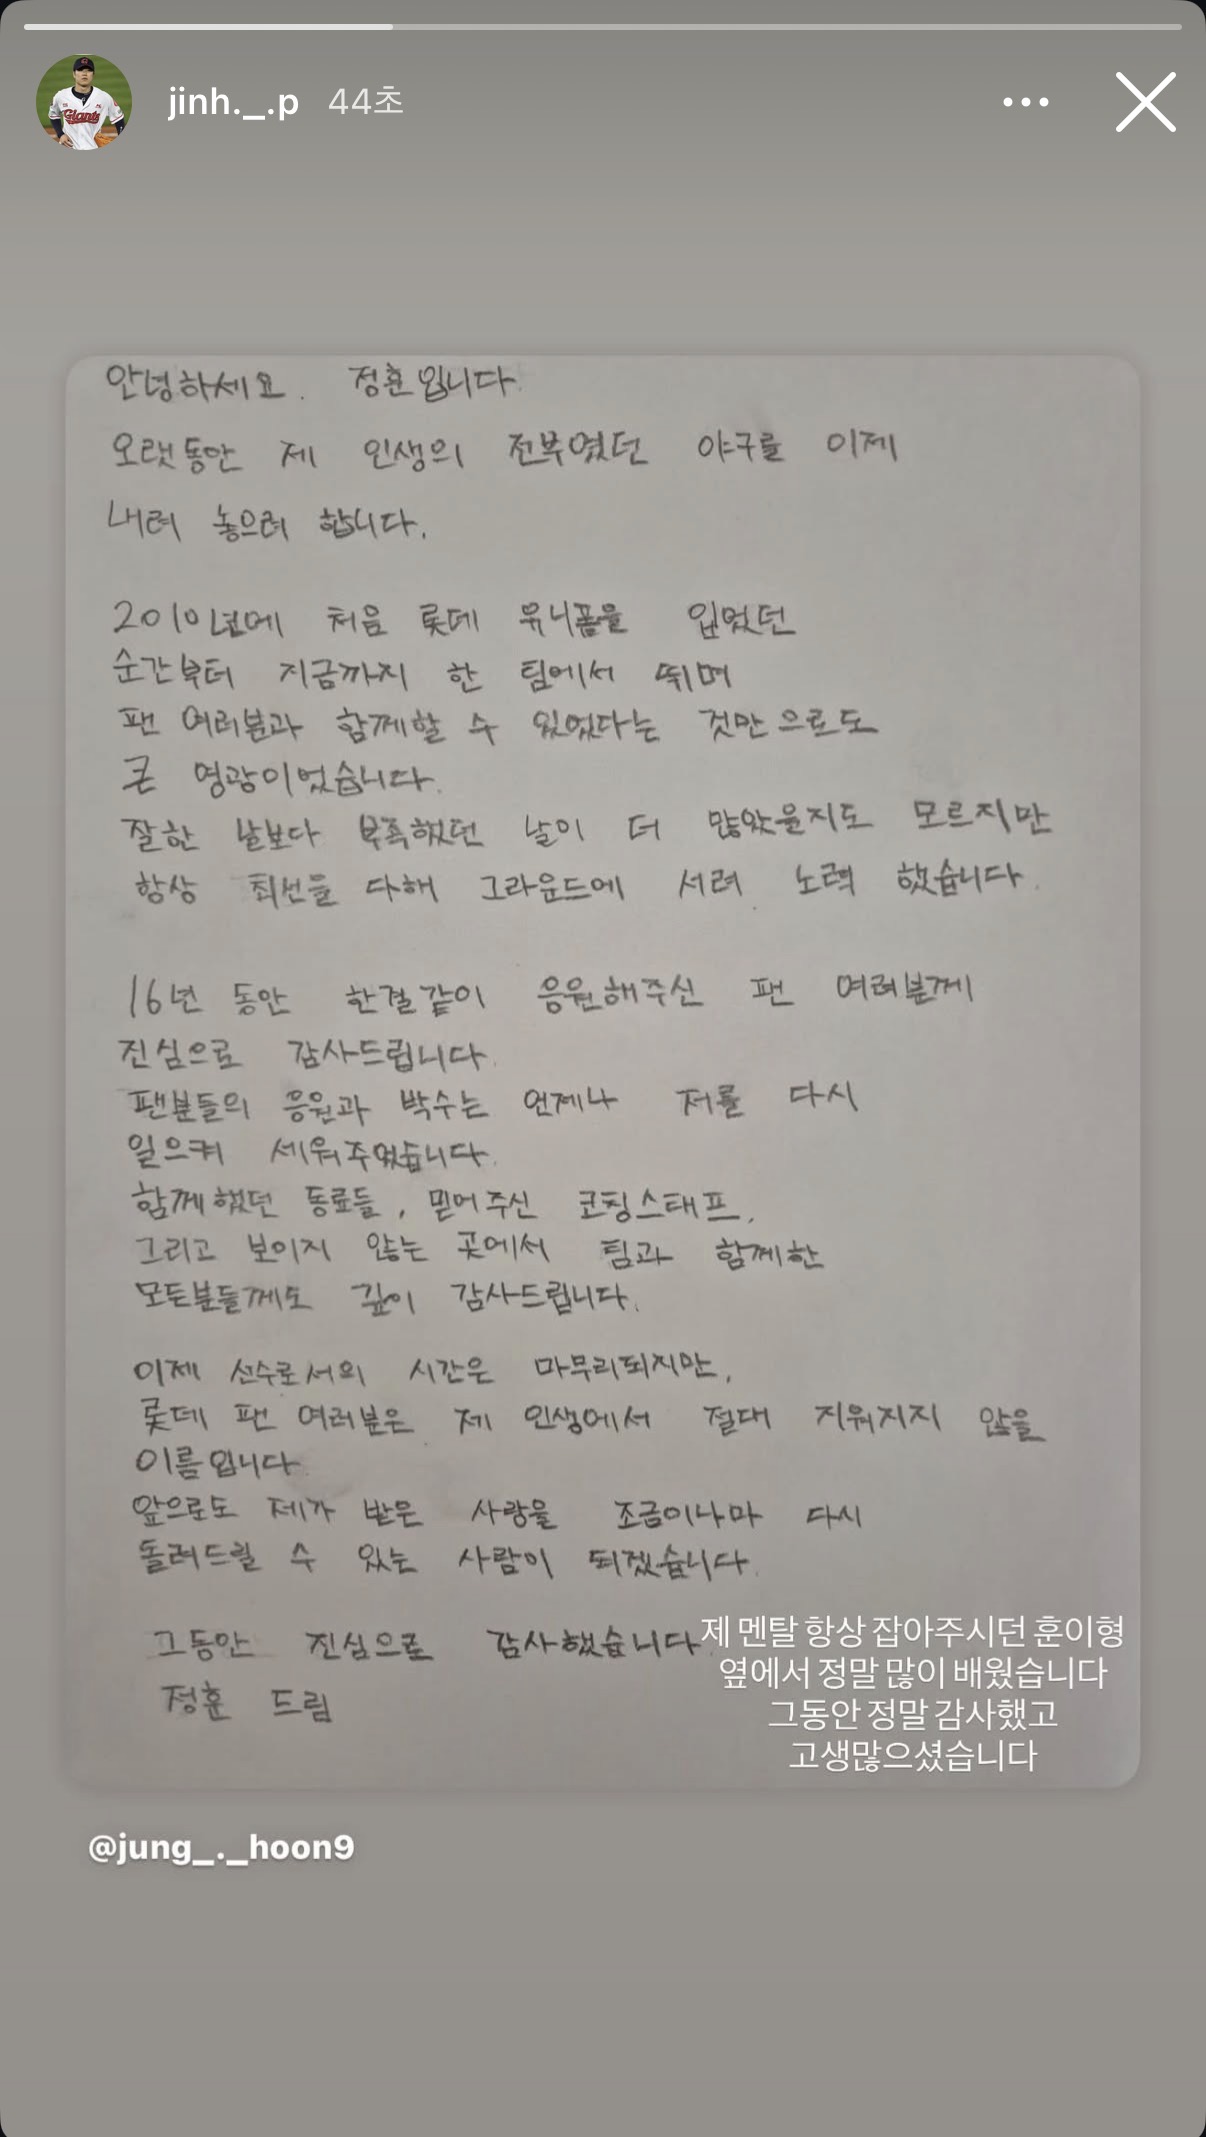 jinh._.p 44초
Giants
안녕하세요. 정훈입니다.
오랫동안 제 인생의 전부였던 야구를 이제
내려 놓으려 합니다.
2010년에 처음 롯데 유니폼을 입었던
순간부터 지금까지 한 팀에서 뛰며
팬 여러분과 함께할 수 있었다는 것만으로도
큰 영광이었습니다.
잘한 날보다 부족했던 날이 더 많았을지도 모르지만
항상 최선을 다해 그라운드에 서려 노력 했습니다.
16년 동안 한결같이 응원해주신 팬 여러분께
진심으로 감사드립니다.
팬분들의 응원과 박수는 언제나 저를 다시
일으켜 세워주었습니다.
함께했던 동료들, 믿어주신 코칭스태프,
그리고 보이지 않는 곳에서 팀과 함께한
모든분들께도 깊이 감사드립니다.
이제 선수로서의 시간은 마무리되지만,
롯데 팬 여러분은 제 인생에서 절대 지워지지 않을
이름입니다.
앞으로도 제가 받은 사랑을 조금이나마 다시
돌려드릴 수 있는 사람이 되겠습니다.
그동안 진심으로 감사했습니다.
정훈 드림
제 멘탈 항상 잡아주시던 훈이형
옆에서 정말 많이 배웠습니다
그동안 정말 감사했고
고생많으셨습니다
@jung_._hoon9